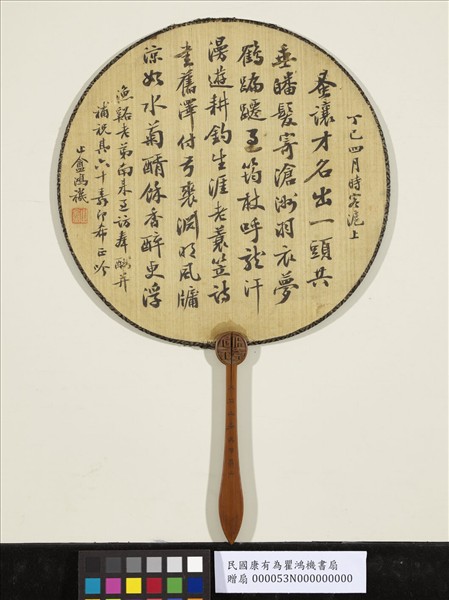 丁巳四月時客滬上
蚤讓才名出一頭共
垂皤髮寄滄洲羽衣夢
鶴蹁躚過筇杖呼龍汗
漫遊耕釣生涯老蓑笠詩
書舊澤付弓裘淵明風牖
涼如水菊醑餘香醉更浮
漁谿老弟南來過訪奉酬并
補祝其六十壽即希正吟
止盦鴻禨
民國康有為瞿鴻機書扇
贈扇 000053N000000000